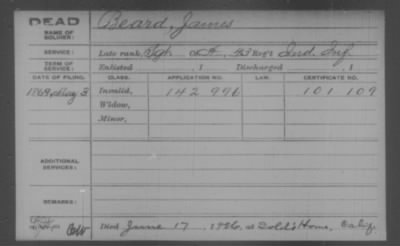 DEAD
NAME OF SOLDIER:
Beard, James
SERVICE:
Late rank, Co. H, 43 Reg't Ind. Inf.
TERM OF SERVICE:
Enlisted , 1 Discharged , 1
DATE OF FILING. CLASS. APPLICATION NO. LAW. CERTIFICATE NO.
1869, May 3 Invalid, 142 990 101 109
Widow,
Minor,
ADDITIONAL SERVICES:
REMARKS:
Died June 17, 1926, at Sold's Home, Calif.